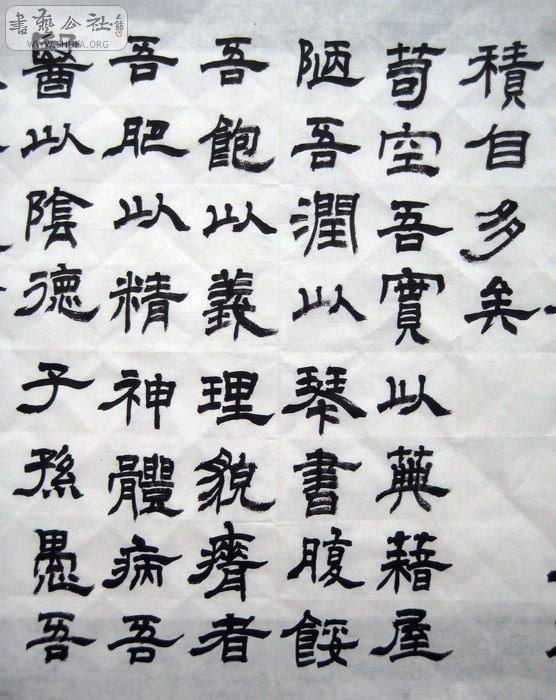 書藝公社
WWW.SHUFA.ORG
積自多矣
笥空吾實以典籍屋
陋吾潤以琴書腹餒
吾飽以義理貌瘠者
吾肥以精神體病吾
醫以陰德子孫愚吾